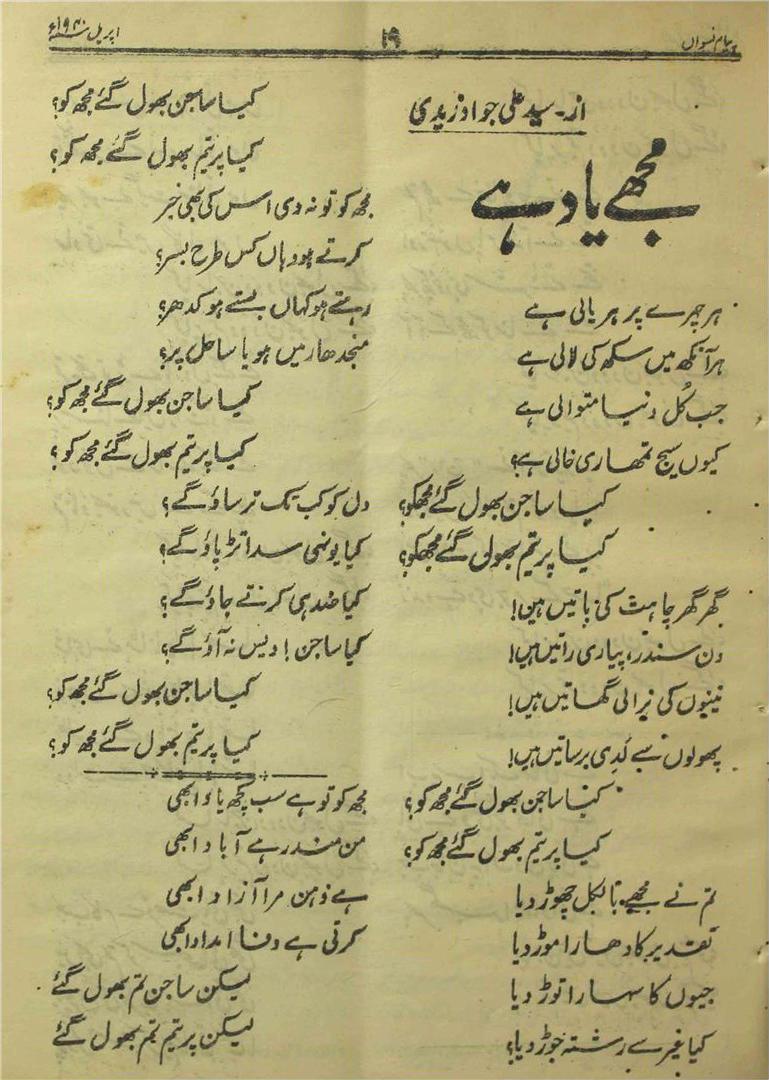 پیام نسواں
۱۹
اپریل سنہ ۱۹۴۰ء
از۔ سید علی جواد زیدی
مجھے یاد ہے
ہر چہرے پر ہریالی ہے
ہر آنکھ میں سکھ کی لالی ہے
جب کُل دنیا متوالی ہے
کیوں سیج تمھاری خالی ہے؟
کیا ساجن بھول گئے مجھکو؟
کیا پریتم بھول گئے مجھکو؟
گھر گھر چاہت کی باتیں ہیں!
دن سندر، پیاری راتیں ہیں!
نینوں کی نرالی گھاتیں ہیں!
پھولوں سے لَدِی برساتیں ہیں!
کیا ساجن بھول گئے مجھ کو؟
کیا پریتم بھول گئے مجھ کو؟
تم نے مجھے بالکل چھوڑ دیا
تقدیر کا دھارا موڑ دیا
جیوں کا سہارا توڑ دیا
کیا غیر سے رشتہ جوڑ دیا؟
کیا ساجن بھول گئے مجھ کو؟
کیا پریتم بھول گئے مجھ کو؟
مجھ کو تو نہ دی اس کی بھی خبر
کرتے ہو وہاں کس طرح بسر؟
رہتے ہو کہاں بستے ہو کدھر؟
منجدھار میں ہو یا ساحل پر؟
کیا ساجن بھول گئے مجھ کو؟
کیا پریتم بھول گئے مجھ کو؟
دل کو کب تک ترساؤ گے؟
کیا یونہی سدا تڑپاؤ گے؟
کیا ضد ہی کرتے جاؤ گے؟
کیا ساجن! دیس نہ آؤ گے؟
کیا ساجن بھول گئے مجھ کو؟
کیا پریتم بھول گئے مجھ کو؟
مجھ کو تو ہے سب کچھ یاد ابھی
من مندر ہے آباد ابھی
ہے ذہن مرا آزاد ابھی
کرتی ہے وفا امداد ابھی
لیکن ساجن تم بھول گئے
لیکن پریتم تم بھول گئے